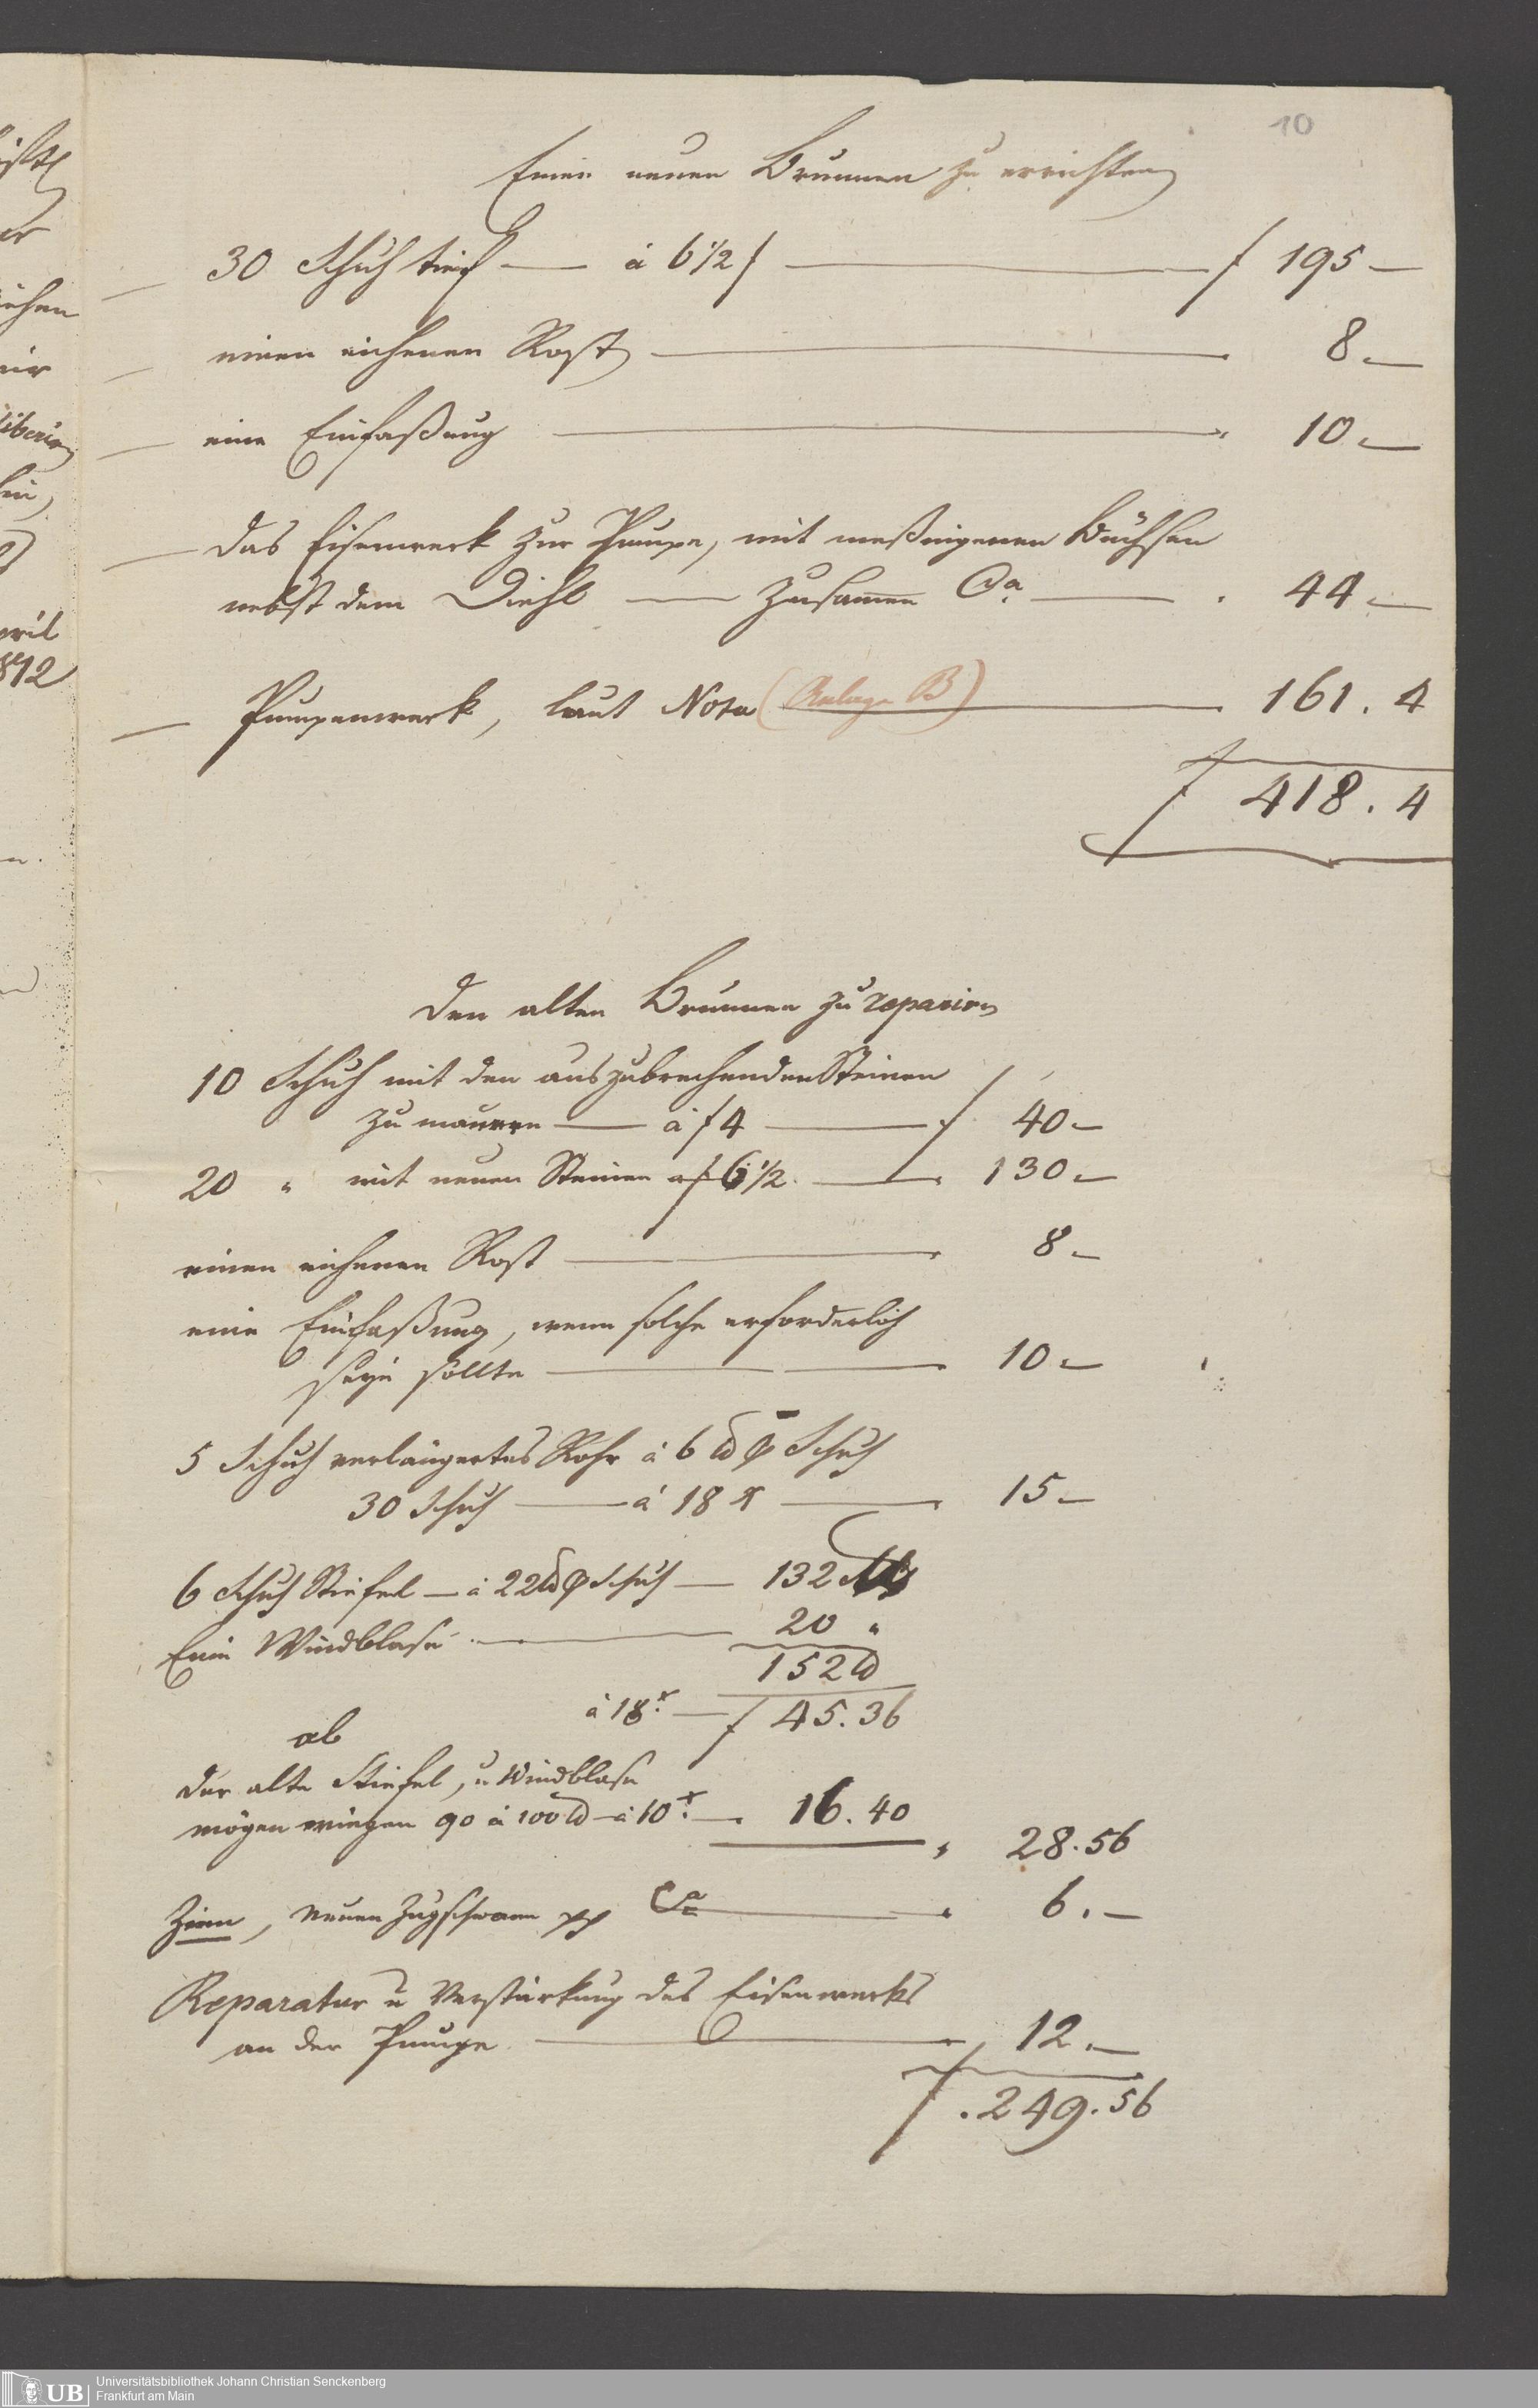 10
Einen neuen Brunnen zu errichten
30 Schuh tief — à 6 1/2 f — f 195 —
einen eichenen Rost — 8. —
eine Einfaßung — 10. —
das Eisenwerk zur Pumpe, mit meßingenen Büchsen
nebst dem Diehl — zusamen Ca. — 44. —
Pumpenwerk, laut Nota (Anlage B) — 161. 4
f 418. 4
Den alten Brunnen zu repariren
10 Schuh mit den auszubrechenden Steinen
zu mauren — à f 4 — f 40 —
20 " mit neuen Steinen a f 6 1/2 — 130. —
einen eichenen Rost — 8 —
eine Einfaßung, wenn solche erforderlich
seyn sollte — 10. —
5 Schuh verlängertes Rohr à 6 ℔ Schuh
30 Schuh — à 18 x — 15 —
6 Schuh Stiefel — à 22 ℔ Schuh — 132
Eine Windblase — 20 "
152 ℔
à 18 x. — f 45. 36
ab
der alte Stiefel, u Windblase
mögen wiegen 90 à 100 ℔ à 10 x. — 16. 40
28. 56
Zinn, neuen Zugschwam pp Ca — 6. —
Reparatur u Verstärkung des Eisenwerks
an der Pumpe — 12. —
f. 249. 56
april
1812
UB
Universitätsbibliothek Johann Christian Senckenberg
Frankfurt am Main